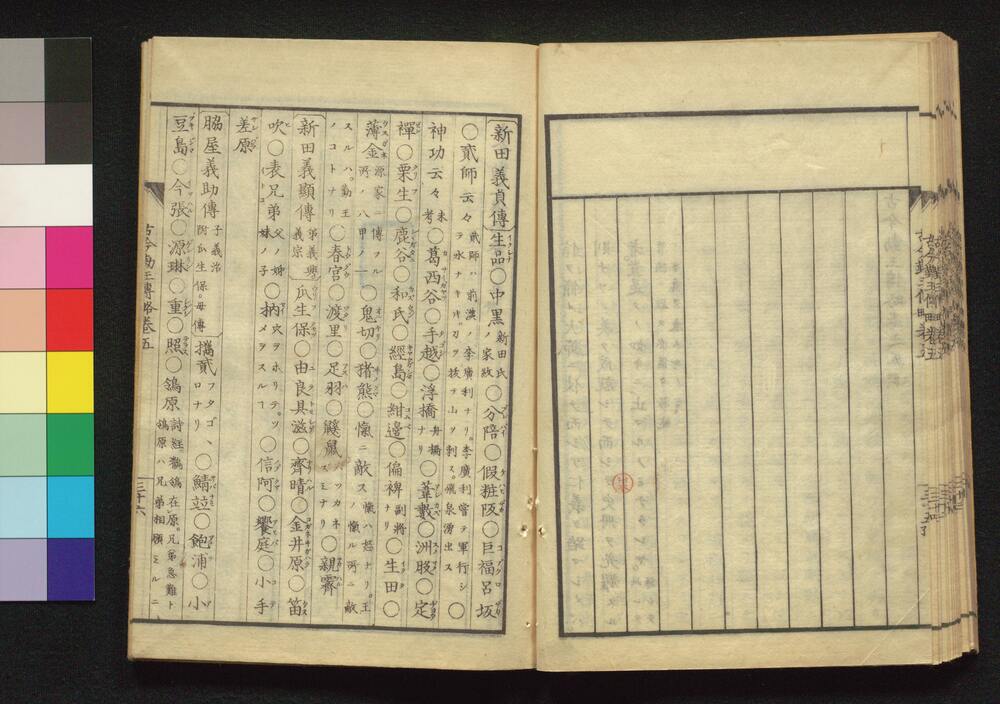 新田義貞傳 生品○中黒 新田氏ノ家紋○分陪○假粧阪○巨福呂坂
○貳師云々 貳師ハ前漢ノ李廣利ナリ。李廣利嘗テ軍行シヲ水ナキ時。刀ヲ抜テ山ヲ刺ス。飛泉湧出ス○
神功云々 未考○葛西谷○手越○浮橋 舟橋ナリ○葦○洲股○定
禪○栗生○鹿谷○和氏○經島○紺邊○偏裨 副將ナリ○生田○
薄金 源家ニ傳フル所ノ八甲ノ一○鬼切○猪熊○愾ニ敵ス 愾ハ怒ナリ。王ノ愾ル所ニ敵
スルハ。勤王ノコトナリ○春宮○渡里○足羽○鼷鼠 ハツカネズミナリ○親霽
新田義顯傳 弟義興 義宗 瓜生保○由良具滋○齊晴○金井原○笛
吹○表兄弟 父ノ姉妹ノ子○抐 穴ヲホリテツメヲスル○信阿○饗庭○小手
差原
脇屋義助傳 子義治 附瓜生保。母傳 攜貳 フタゴヽロナリ○鯖竝○飽浦○小
豆島○今張○源琳○重○照○鴒原 詩経鶺鴒在原。兄弟急難ト 鴒原ハ兄弟相顧ミルニ
古今勤王傳略卷五
三十六